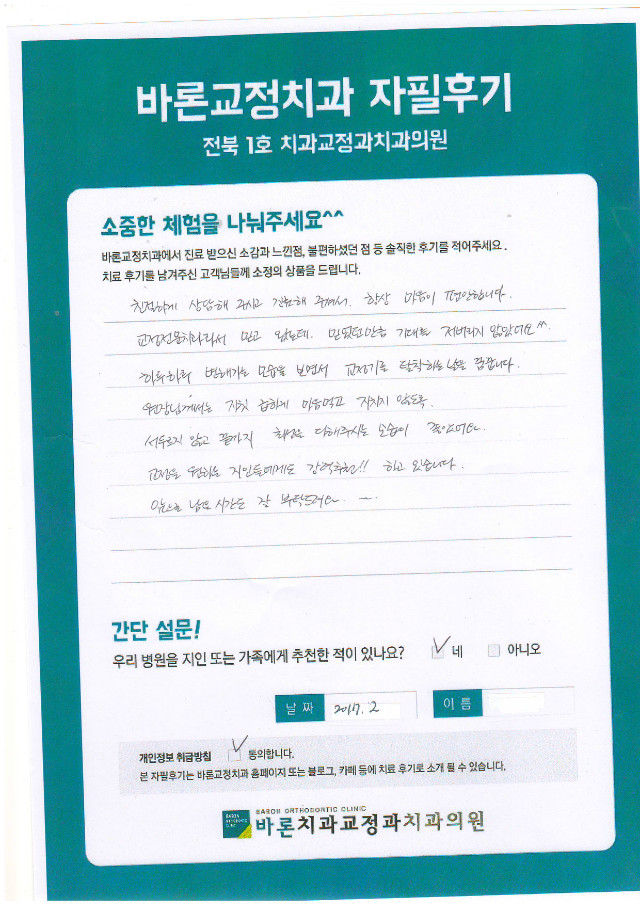 바론교정치과 자필후기
전북 1호 치과교정과치과의원
소중한 체험을 나눠주세요^^
바론교정치과에서 진료 받으신 소감과 느낀점, 불편하셨던 점 등 솔직한 후기를 적어주세요.
치료 후기를 남겨주신 고객님들께 소정의 상품을 드립니다.
친절하게 상담해 주시고 진료해 주셔서, 항상 마음이 편안합니다.
교정전문치과라서 믿고 왔는데, 믿었던만큼 기대를 저버리지 않았어요^^
하루하루 변해가는 모습을 보면서 교정기를 탈착하는 날을 꿈꿉니다.
원장님께서는 자칫 급하게 마음먹고 지치지 않도록,
서두르지 않고 끝까지 최선을 다해주시는 모습이 좋았어요.
교정을 원하는 지인들에게도 강력추천!! 하고 있습니다.
앞으로 남은 시간도 잘 부탁드려요.
간단 설문!
우리 병원을 지인 또는 가족에게 추천한 적이 있나요? ✓ 네 아니오
날짜 2017. 2 이름
개인정보 취급방침 ✓ 동의합니다.
본 자필후기는 바론교정치과 홈페이지 또는 블로그, 카페 등에 치료 후기로 소개 될 수 있습니다.
BARON ORTHODONTIC CLINIC
바론치과교정과치과의원